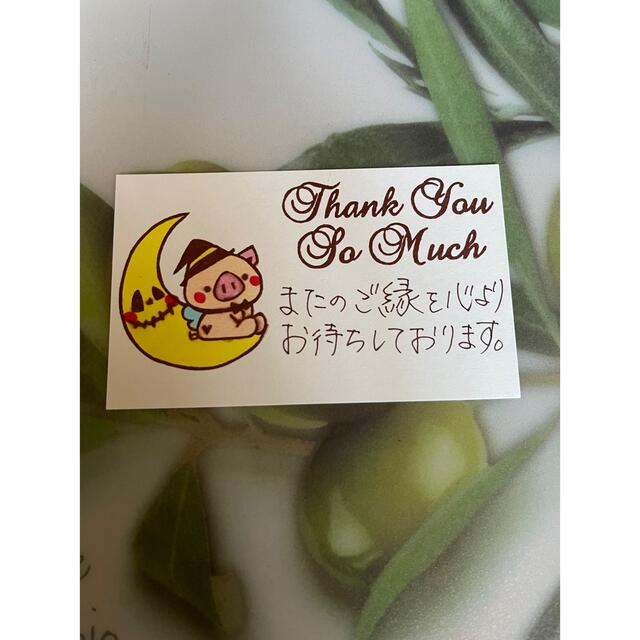 Thank You
So Much
またのご縁を心より
お待ちしております。